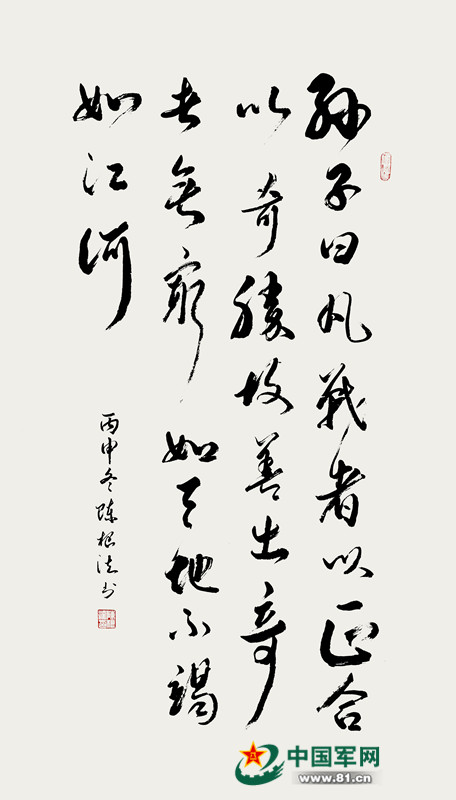 孙子曰凡战者以正合
以奇勝故善出奇
者無窮如天地不竭
如江河
丙申冬陈根法书
中国军网
www.81.cn